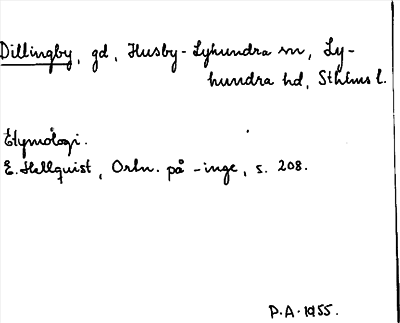 Dillingby, gd, Husby-Lyhundra sn, Ly-
hundra hd, Sthlms l.
Etymologi.
E. Hellquist, Ortn. på -inge, s. 208.
P.A. 1955.